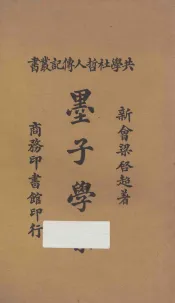 共學社哲人傳記叢書
新會梁啓超著
墨子學
商務印書館印行